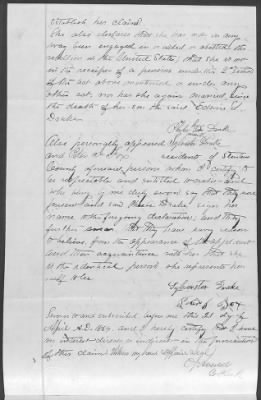 establish her claim
She also declares that she has not in any
way been engaged in or aided or abetted the
rebellion in the United States, that she is not
in the receipt of a pension under the 2 Section
of the act above mentioned or under any
other act, nor has she again married since
the death of her son the said Edwin
Drake
Also personally appeared Sylvester Drake
and residents of Steuben
County persons whom I certify to
be respectable and entitled to credit and
who being by me duly sworn say that they were
present and saw Drake sign her
name to the foregoing declaration, and they
further swear that they have every reason
to believe, from the appearance of the applicant
and their acquaintance with her that she
is the identical person she represents her
self to be
Sylvester Drake
Fox
Sworn to and subscribed before me this 21 day of
April A.D. 1869, and I hereby certify that I have
no interest direct or indirect in the prosecution
of this claim
Clerk